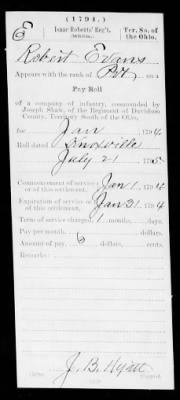 (1794.)
E
Isaac Roberts' Reg't,
(Militia.)
Ter. So. of
the Ohio.
Robert Evans
Appears with the rank of Pvt on a
Pay Roll
of a company of infantry, commanded by
Joseph Shaw, of the Regiment of Davidson
County, Territory South of the Ohio,
for Jan , 1794.
Roll dated Knoxville
July 21 , 1795
Commencement of service or of this settlement, Jan 1 , 1794
Expiration of service or of this settlement, Jan 31 , 1794
Term of service charged, 1 months, days.
Pay per month, dollars,
Amount of pay, dollars, cents.
Remarks:
J. B. Hyatt
Copyist.